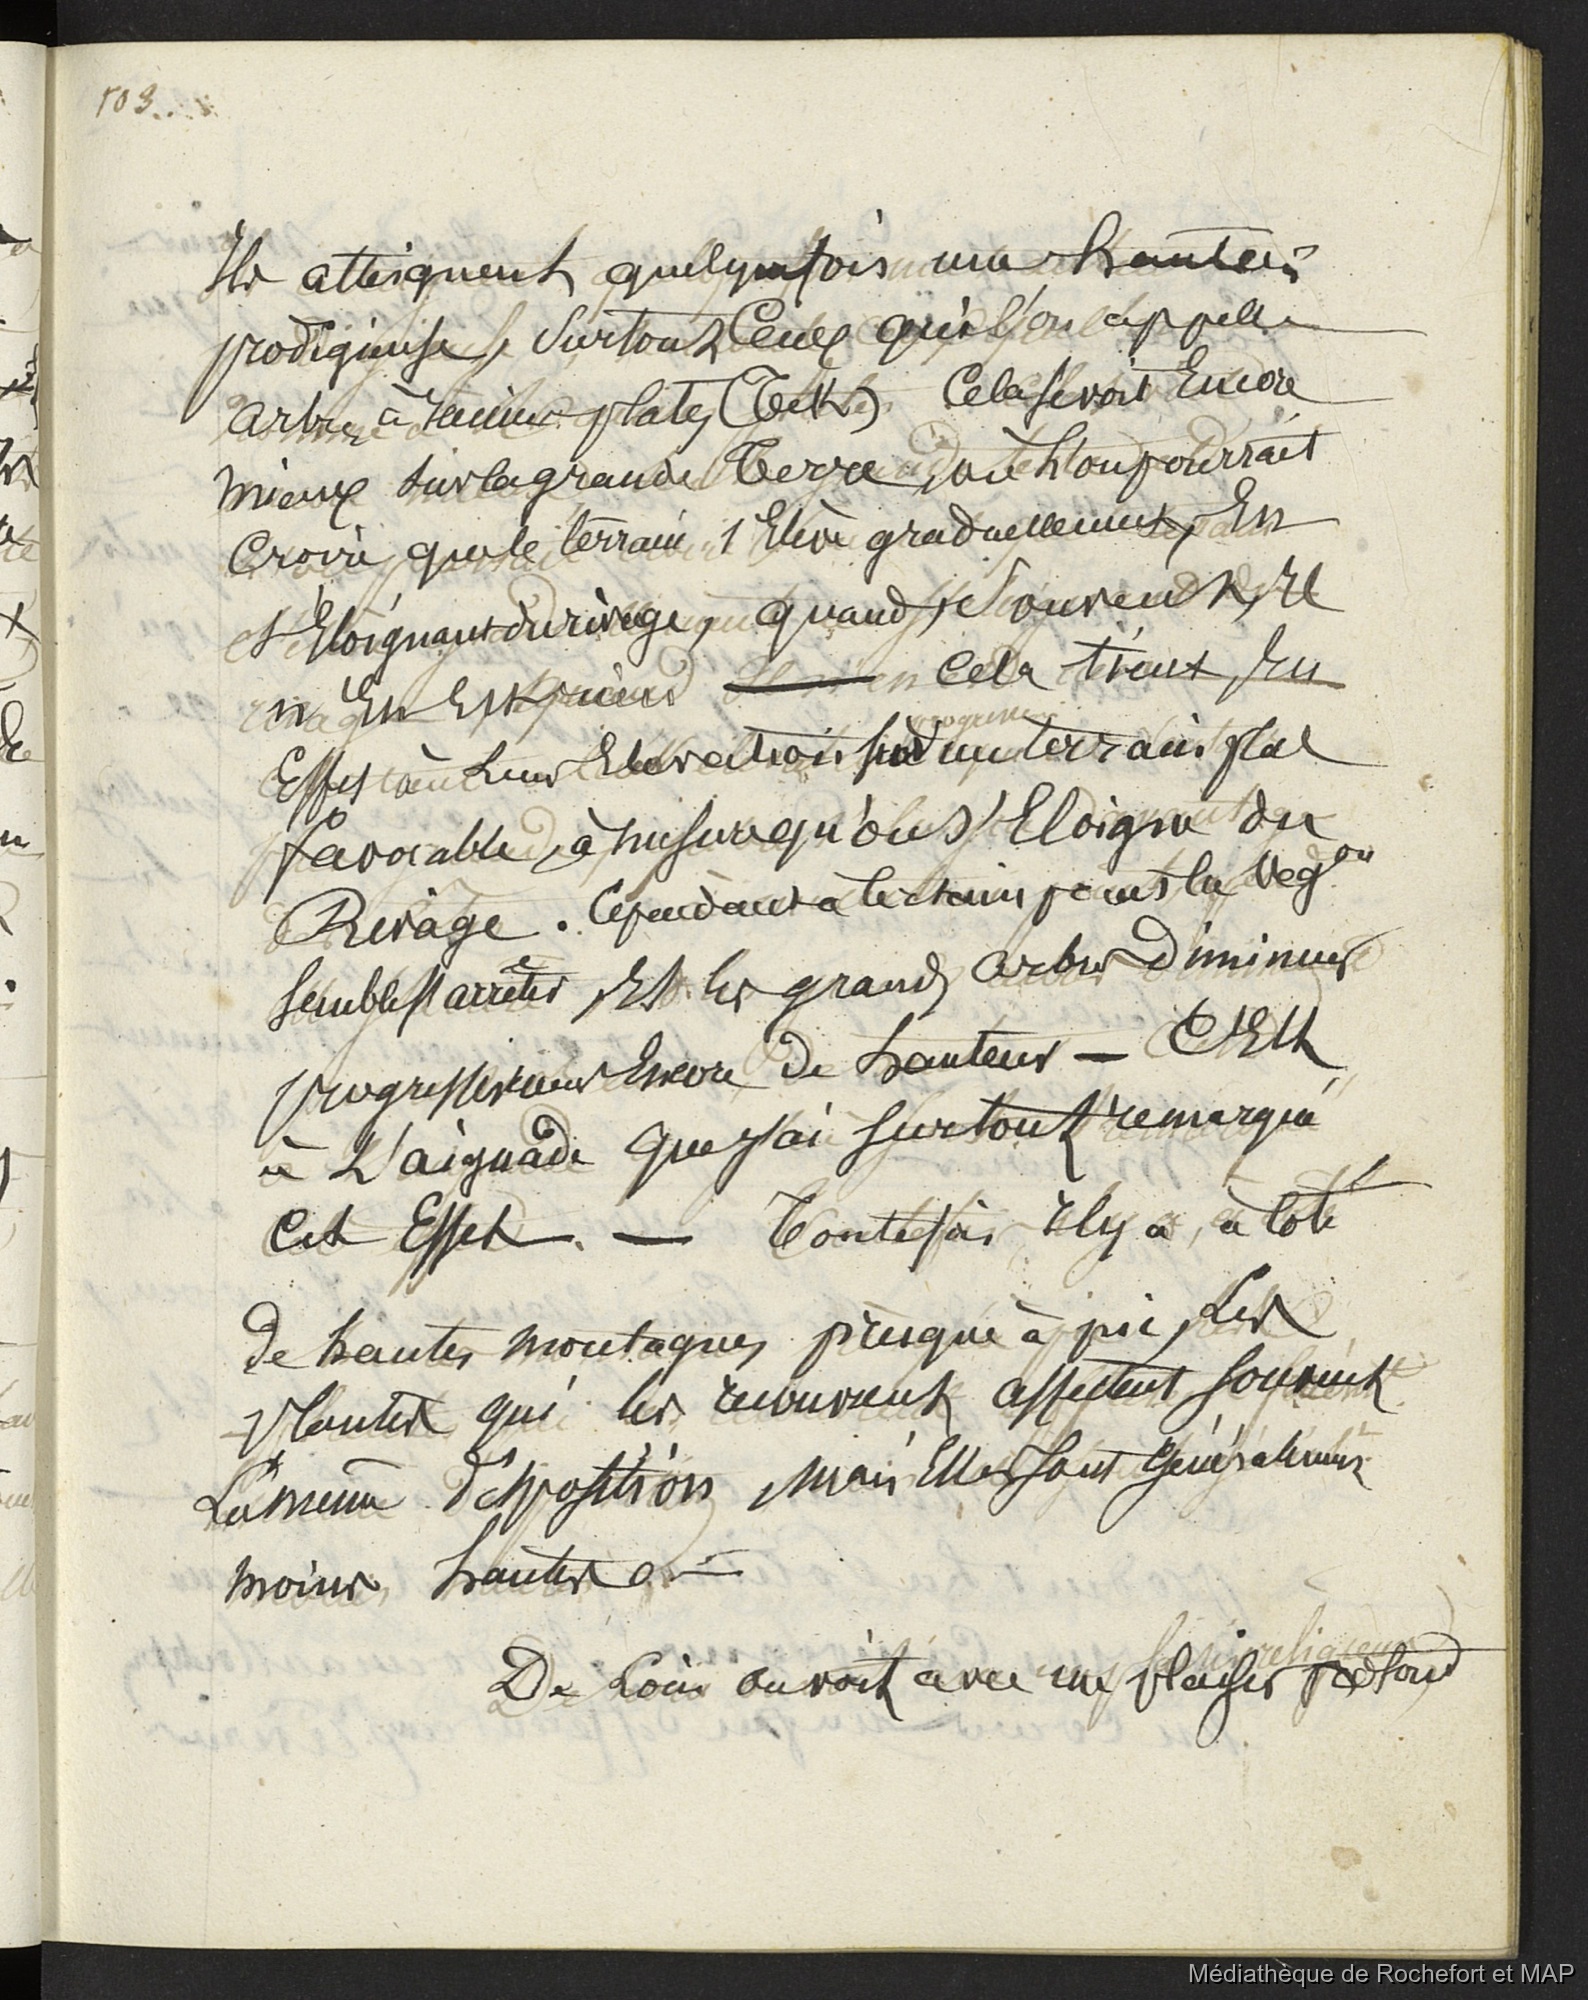 103...
Ils atteignent quelquefois une hauteur
prodigieuse, surtout Ceux que l'on appelle
arbres à racines plates (Teck) Cela se voit Encore
mieux sur la grande Terre, où l'on pourrait
Croire que le terrain s'Elève graduellement, En
s'Eloignant du rivage, quand, souvent, Il
n'En Est rien Cela tient En
Effet à Leur Elevation sur un terrain plat
favorable, à mesure qu'on s'Eloigne du
Rivage. Cependant à certains points la Veg.on
semble s'arrêter, Et les grands arbres Diminuer
progressivement Encore de hauteur — C'Est
à L'aiguade que J'ai surtout remarqué
Cet Effet. — Toutefois Il y a, à Coté
de hautes montagnes presque à pic, Les
plantes qui les recouvrent affectent souvent
La même disposition, Mais Elles sont Généralement
moins hautes. —
De Loin on voit avec un plaisir profond
Médiathèque de Rochefort et MAP